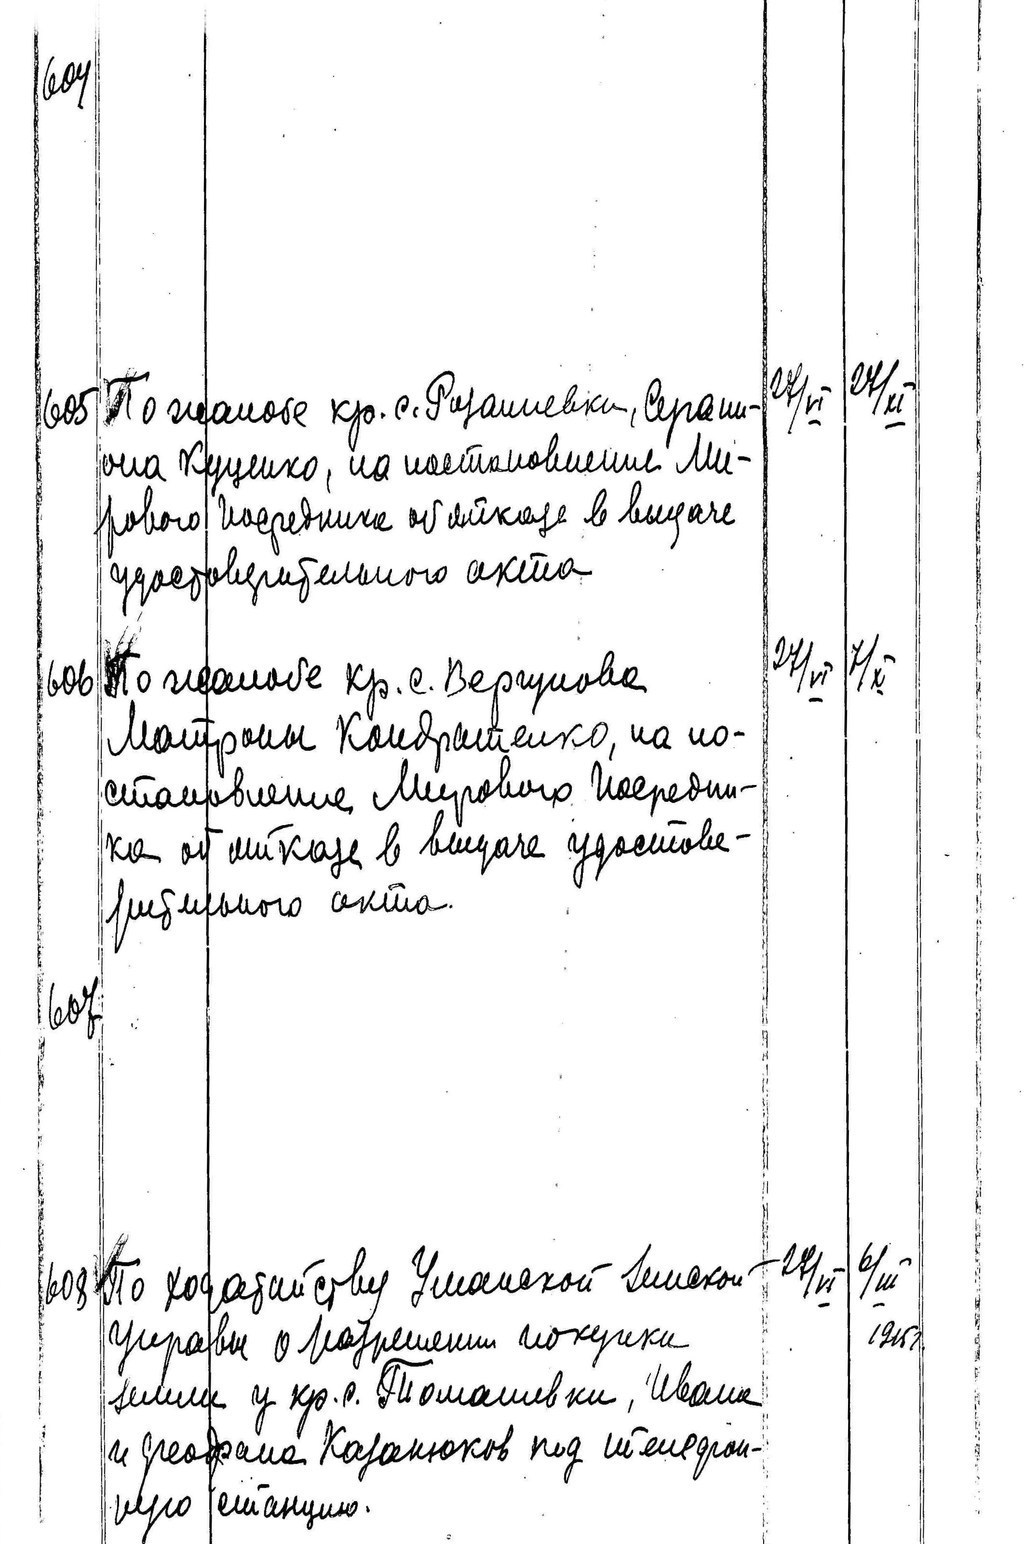 604
605 По жалобе кр. с. Ризашевки, Серапи- 27/VI 27/XI
она Куценко, на постановление Ми-
рового Посредника об отказе в выдаче
удостоверительного акта
606 По жалобе кр. с. Вергунова 27/VI 7/XI
Матроны Кондратенко, на по-
становление Мирового Посредни-
ка об отказе в выдаче удостове-
рительного акта.
607
608 По ходатайству Уманской земской 27/VI 6/III
управы о разрешении покупки 1915г.
земли у кр. с. Томашевки, Ивана
и Феофана Казанюков под телефон-
ную станцию.